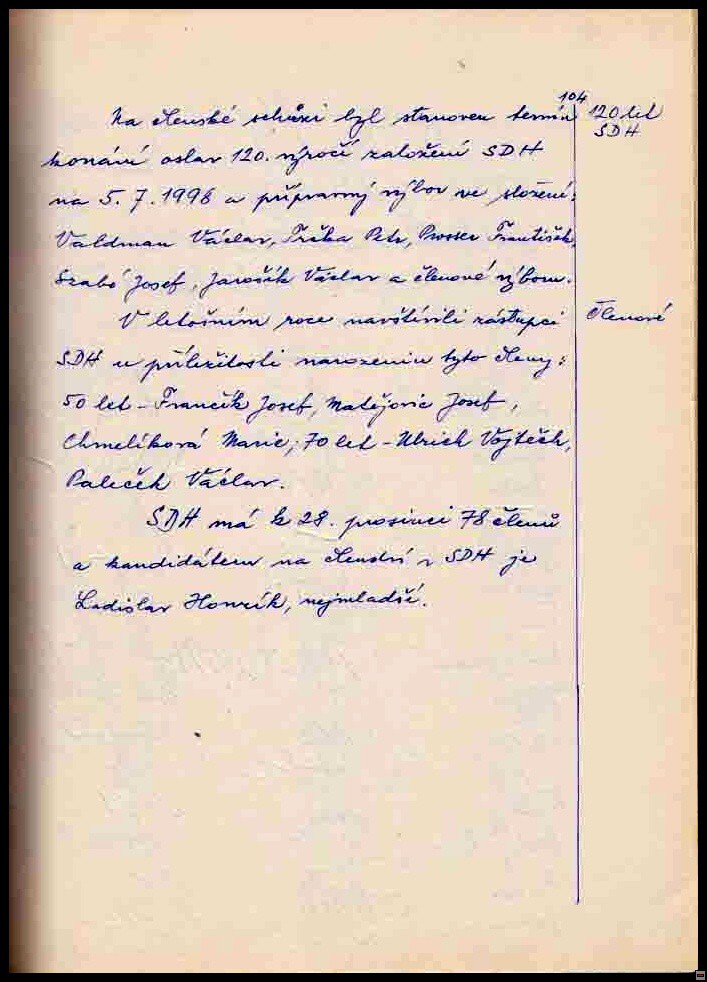 104
Na členské schůzi byl stanoven termín
120 let
SDH
konání oslav 120. výročí založení SDH
na 5. 7. 1998 a přípravný výbor ve složení:
Valdman Václav, Trčka Petr, Prosser František,
Szabó Josef, Jarošík Václav a členové výboru.
V letošním roce navštívili zástupci
Členové
SDH u příležitosti narozenin tyto členy:
50 let - Frančík Josef, Matějovic Josef,
Chmelíková Marie; 70 let - Ulrich Vojtěch,
Paleček Václav.
SDH má k 28. prosinci 78 členů
a kandidátem na členství v SDH je
Ladislav Honzík, nejmladší.